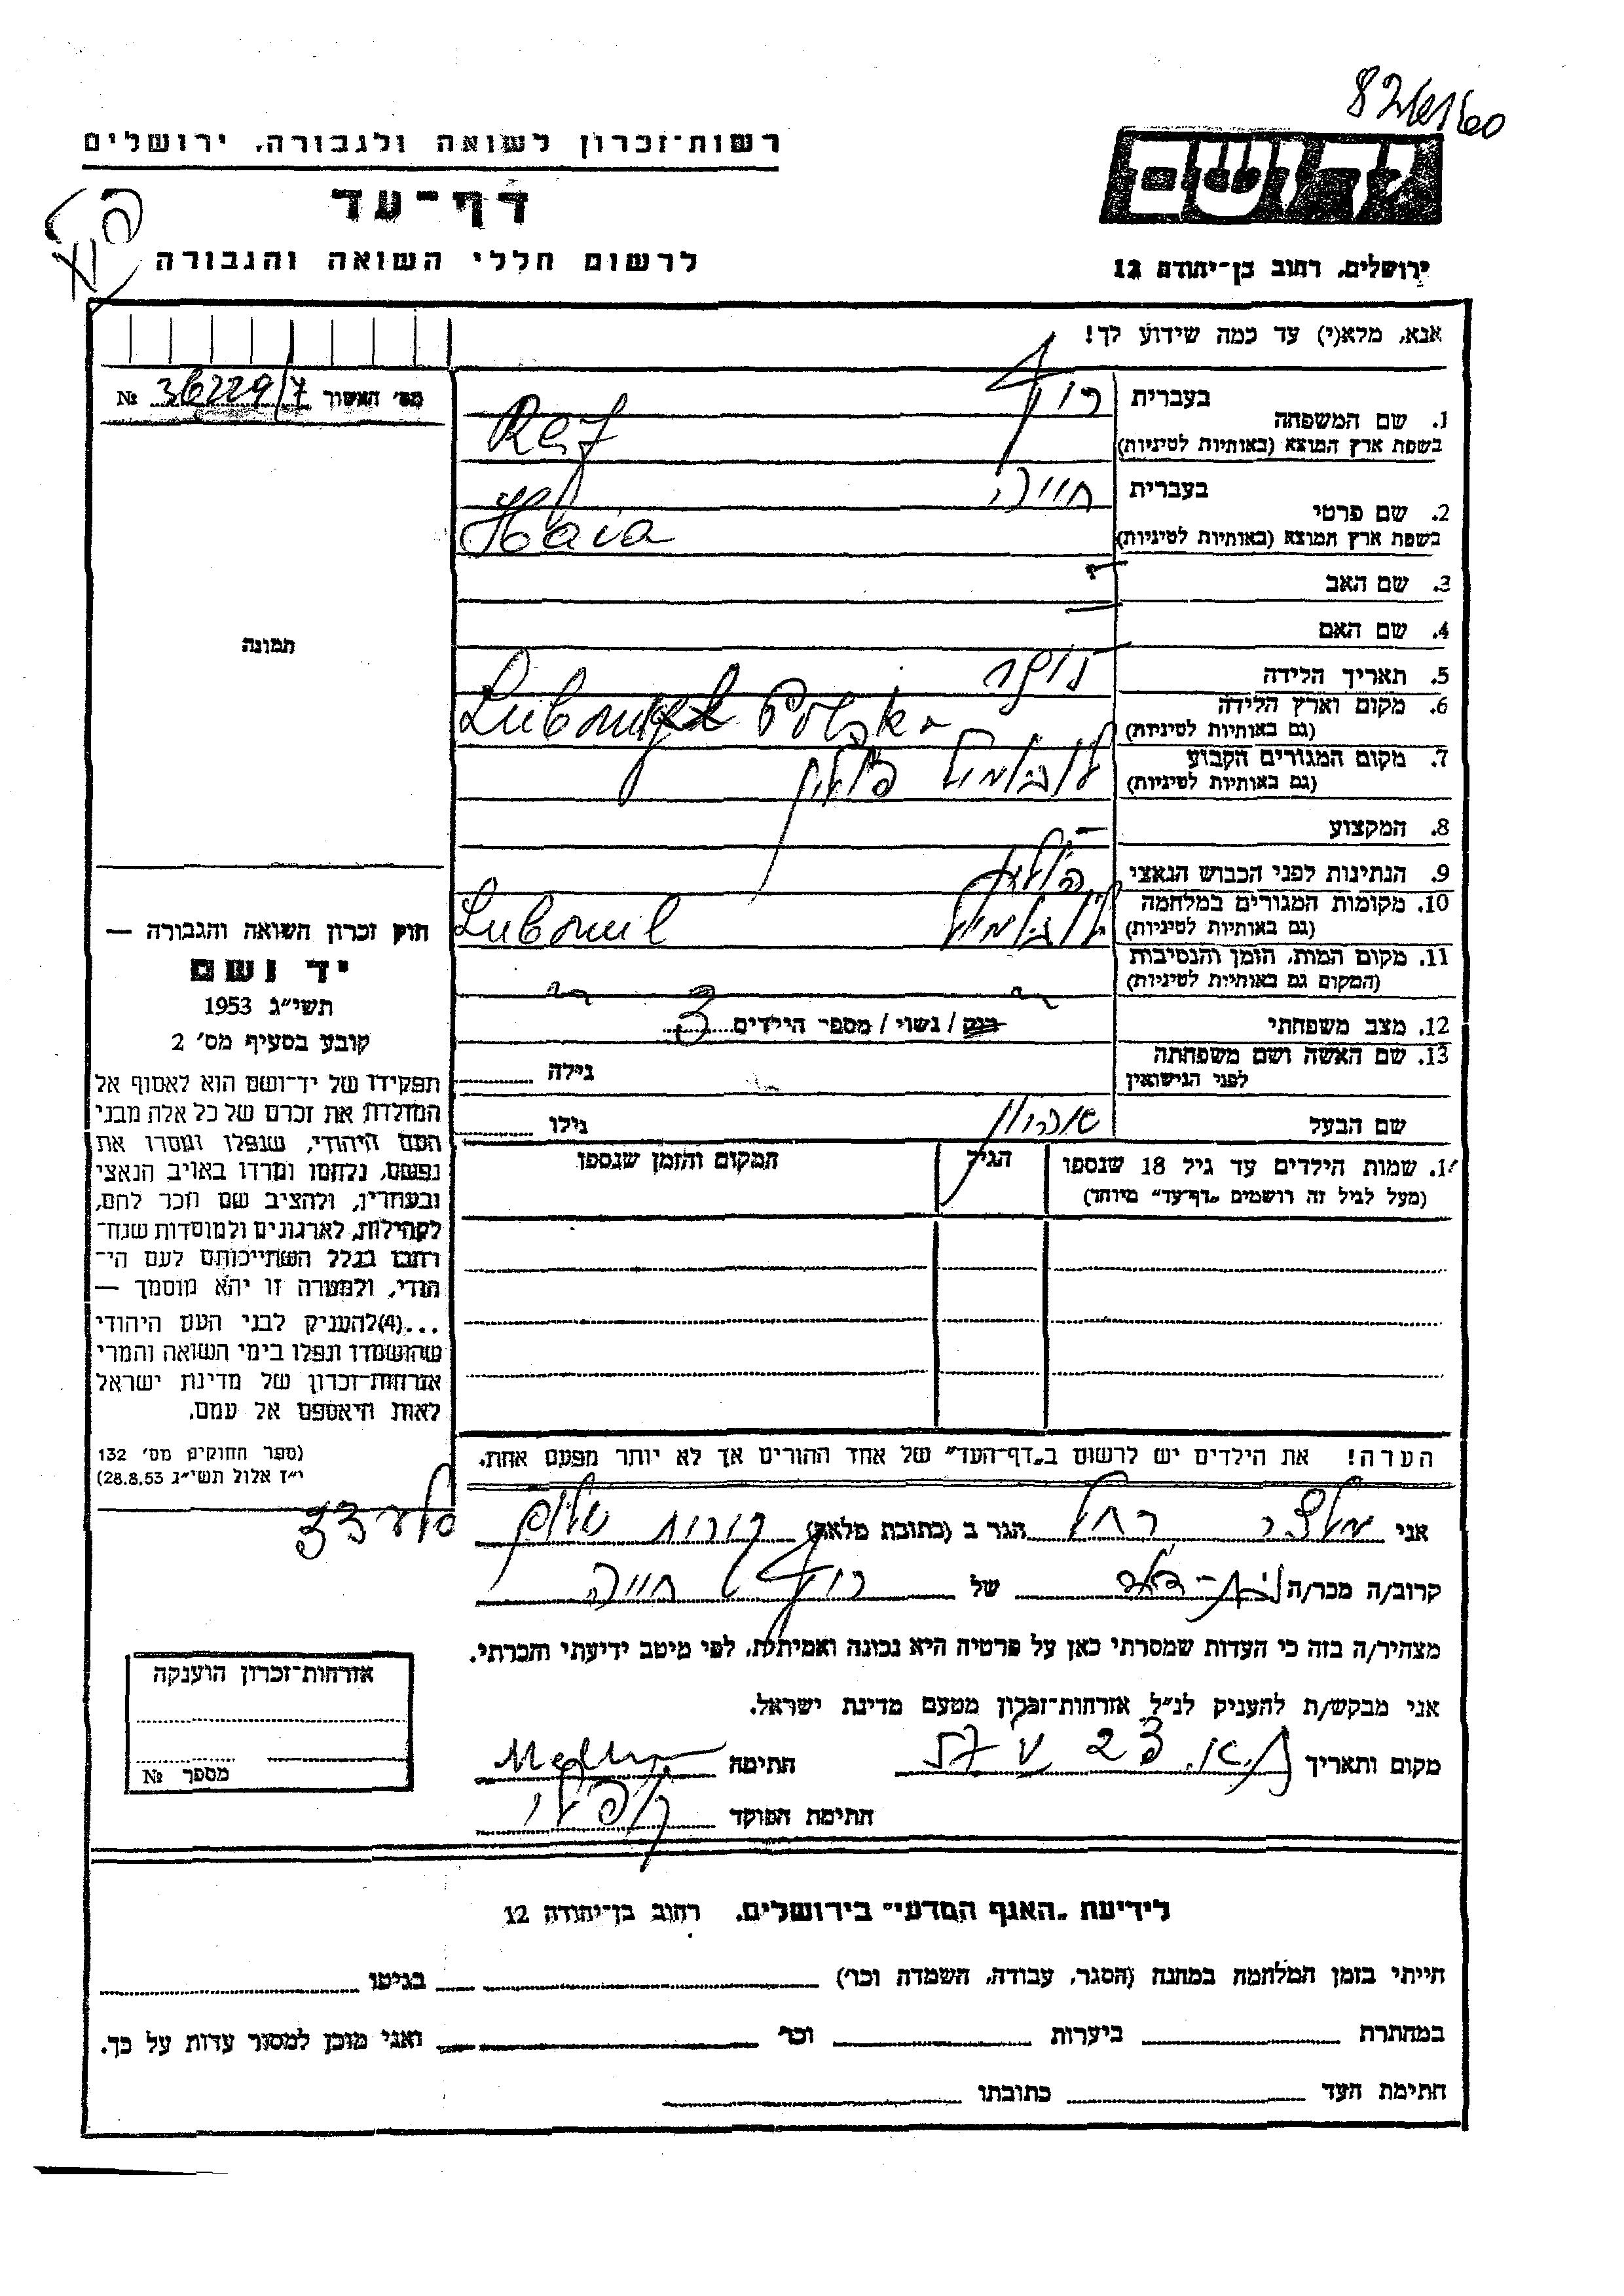 רשות-זכרון לשואה ולגבורה, ירושלים
דף-עד
לרשום חללי השואה והגבורה
ירושלים, רחוב בן-יהודה 12
אנא, מלא(י) עד כמה שידוע לך!
מס' האשור 36229/7 №
1. שם המשפחה בעברית
בשפת ארץ המוצא (באותיות לטיניות)
2. שם פרטי בעברית חייה
בשפת ארץ המוצא (באותיות לטיניות) Haia
3. שם האב –
4. שם האם –
5. תאריך הלידה
6. מקום וארץ הלידה
(גם באותיות לטיניות) Polska
7. מקום המגורים הקבוע לובומיל פולין
(גם באותיות לטיניות)
8. המקצוע –
9. הנתינות לפני הכבוש הנאצי פולנית
10. מקומות המגורים במלחמה לובומיל
(גם באותיות לטיניות) Luboml
11. מקום המות, הזמן והנסיבות
(המקום גם באותיות לטיניות)
12. מצב משפחתי רווק / נשוי / מספר הילדים 3
13. שם האשה ושם משפחתה
לפני הנישואין גילה
שם הבעל אהרון גילו
1. שמות הילדים עד גיל 18 שנספו הגיל המקום והזמן שנספו
(מעל לגיל זה רושמים "דף-עד" מיוחד)
הערה! את הילדים יש לרשום ב"דף-העד" של אחד ההורים אך לא יותר מפעם אחת.
תמונה
חוק זכרון השואה והגבורה —
יד ושם
תשי"ג 1953
קובע בסעיף מס' 2
תפקידו של יד-ושם הוא לאסוף אל
המולדת את זכרם של כל אלה מבני
העם היהודי, שנפלו ומסרו את
נפשם, נלחמו ומרדו באויב הנאצי
ובעוזריו, ולהציב שם וזכר להם,
לקהילות, לארגונים ולמוסדות שנח-
רבו בגלל השתייכותם לעם הי-
הודי, ולמטרה זו יהא מוסמך —
...(4)להעניק לבני העם היהודי
שהושמדו ונפלו בימי השואה והמרי
אזרחות-זכרון של מדינת ישראל
לאות היאספם אל עמם.
(ספר החוקים מס' 132
י"ז אלול תשי"ג 28.8.53)
אני מלצר רחל הגר ב (כתובת מלאה)
קרוב/ה מכר/ה בת-דוד של חייה
מצהיר/ה בזה כי העדות שמסרתי כאן על פרטיה היא נכונה ואמיתית, לפי מיטב ידיעתי והכרתי.
אני מבקש/ת להעניק לנ"ל אזרחות-זכרון מטעם מדינת ישראל.
מקום ותאריך חתימה
חתימת הפוקד
אזרחות-זכרון הוענקה
מספר №
לידיעת "האגף המדעי" בירושלים, רחוב בן-יהודה 12
הייתי בזמן המלחמה במחנה (הסגר, עבודה, השמדה וכו') בגיטו
במחתרת ביערות וכו' ואני מוכן למסור עדות על כך.
חתימת העד כתובתו